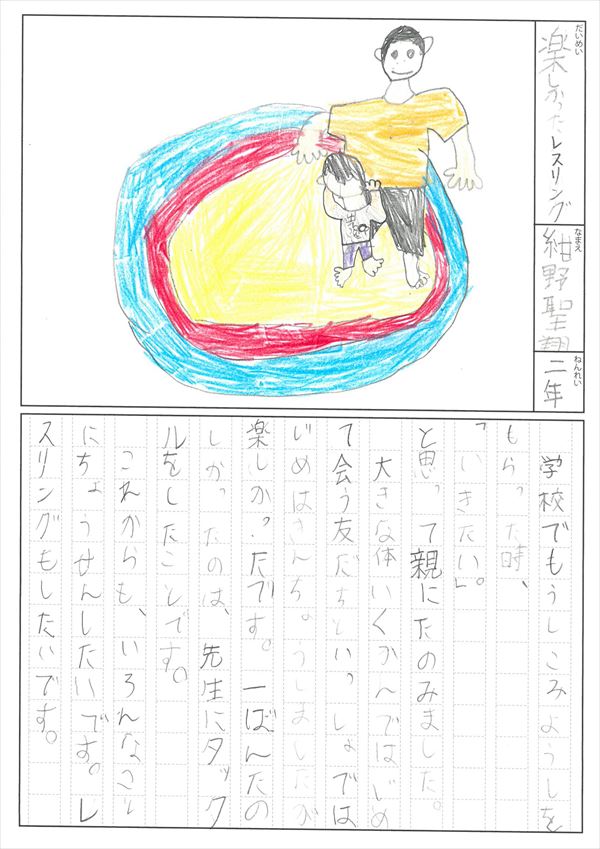 だいめい
楽しかったレスリング
なまえ
紺野聖翔
ねんれい
二年
学校でもうしこみようしを
もらった時、
「いきたい」。
と思って親にたのみました。
大きな体いくかんではじめ
て会う友だちといっしょでは
じめはきんちょうしましたが
楽しかったです。一ばんたの
しかったのは、先生にタック
ルをしたことです。
これからも、いろんなこと
にちょうせんしたいです。レ
スリングもしたいです。